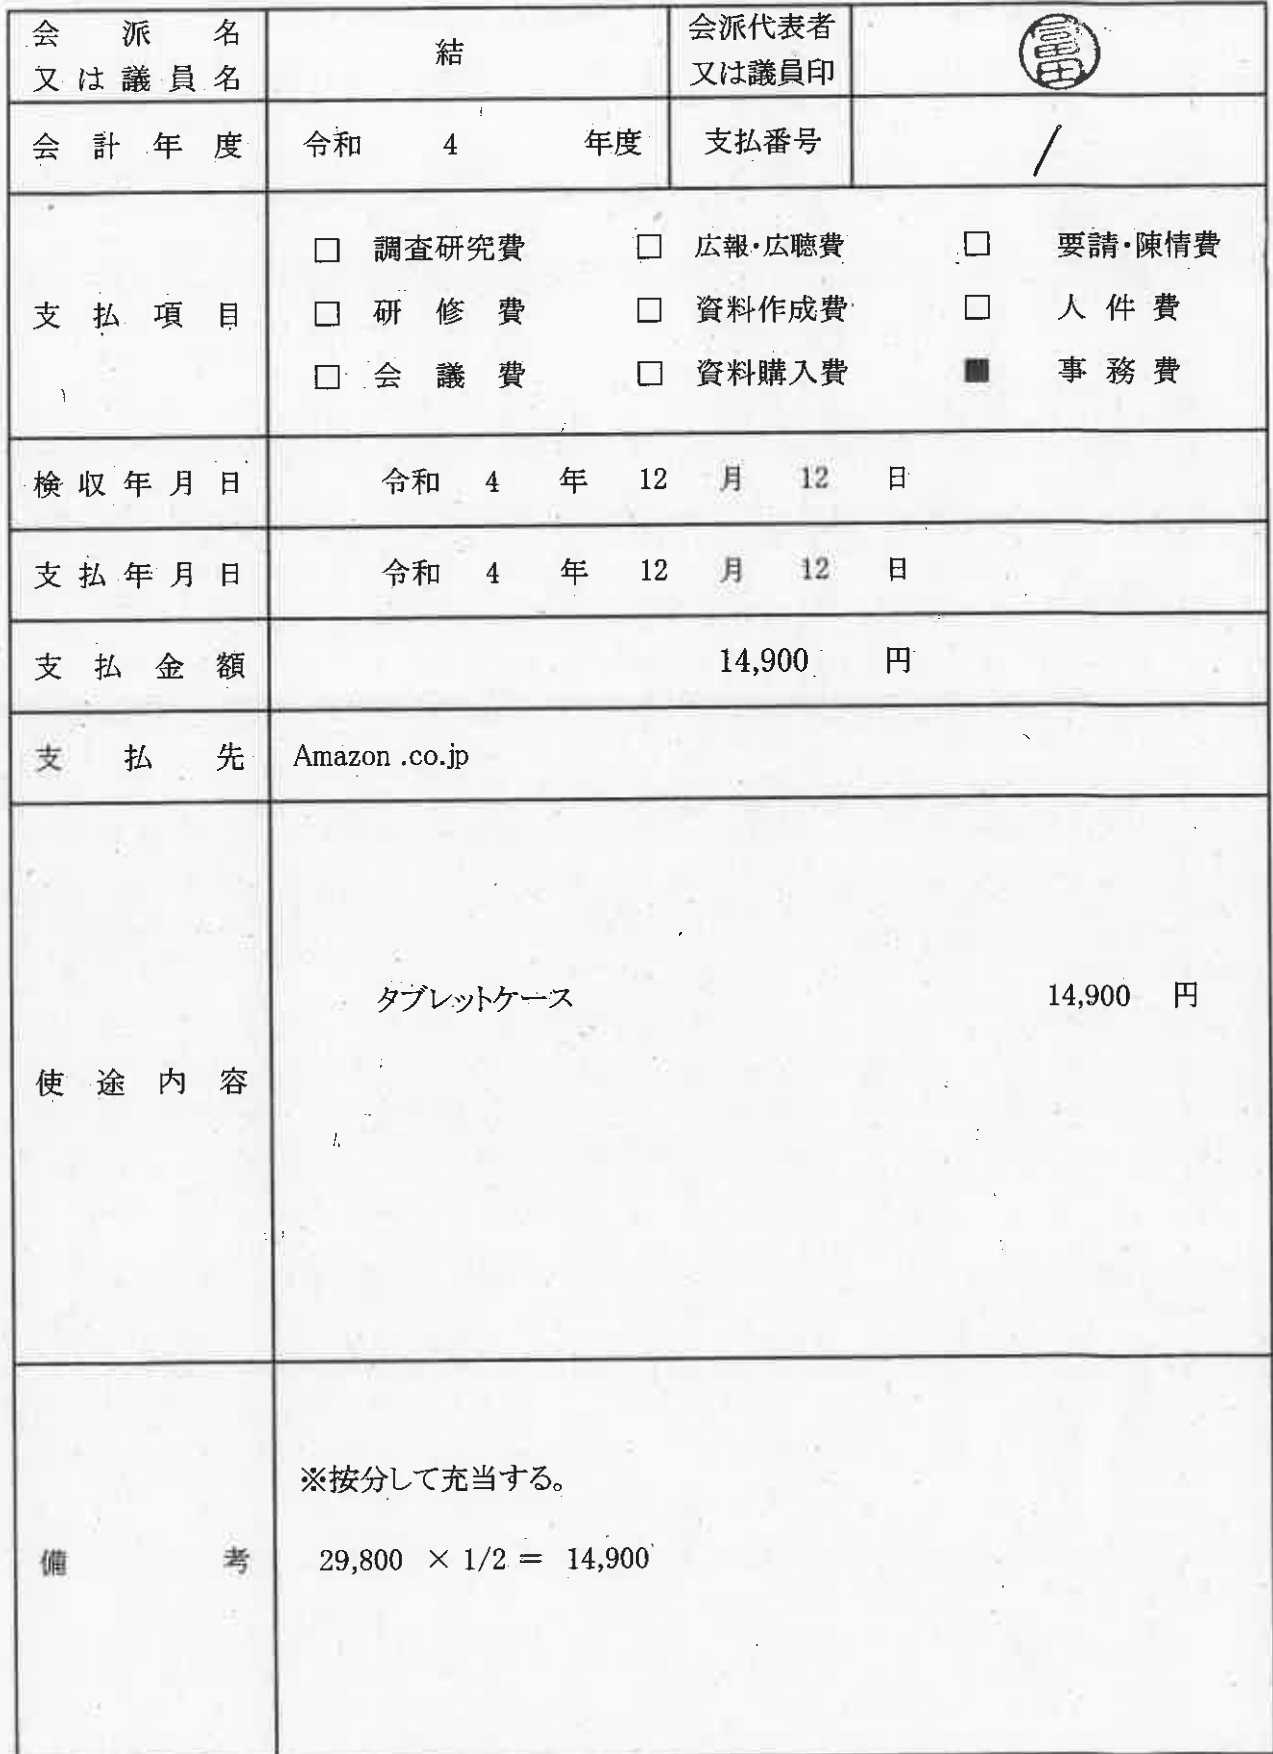 会派名
又は議員名
結
会派代表者
又は議員印
富田
会計年度
令和 4 年度
支払番号
/
支払項目
□ 調査研究費 □ 広報・広聴費 □ 要請・陳情費
□ 研修費 □ 資料作成費 □ 人件費
□ 会議費 □ 資料購入費 ■ 事務費
検収年月日
令和 4 年 12 月 12 日
支払年月日
令和 4 年 12 月 12 日
支払金額
14,900 円
支払先
Amazon .co.jp
使途内容
タブレットケース 14,900 円
備考
※按分して充当する。
29,800 × 1/2 = 14,900